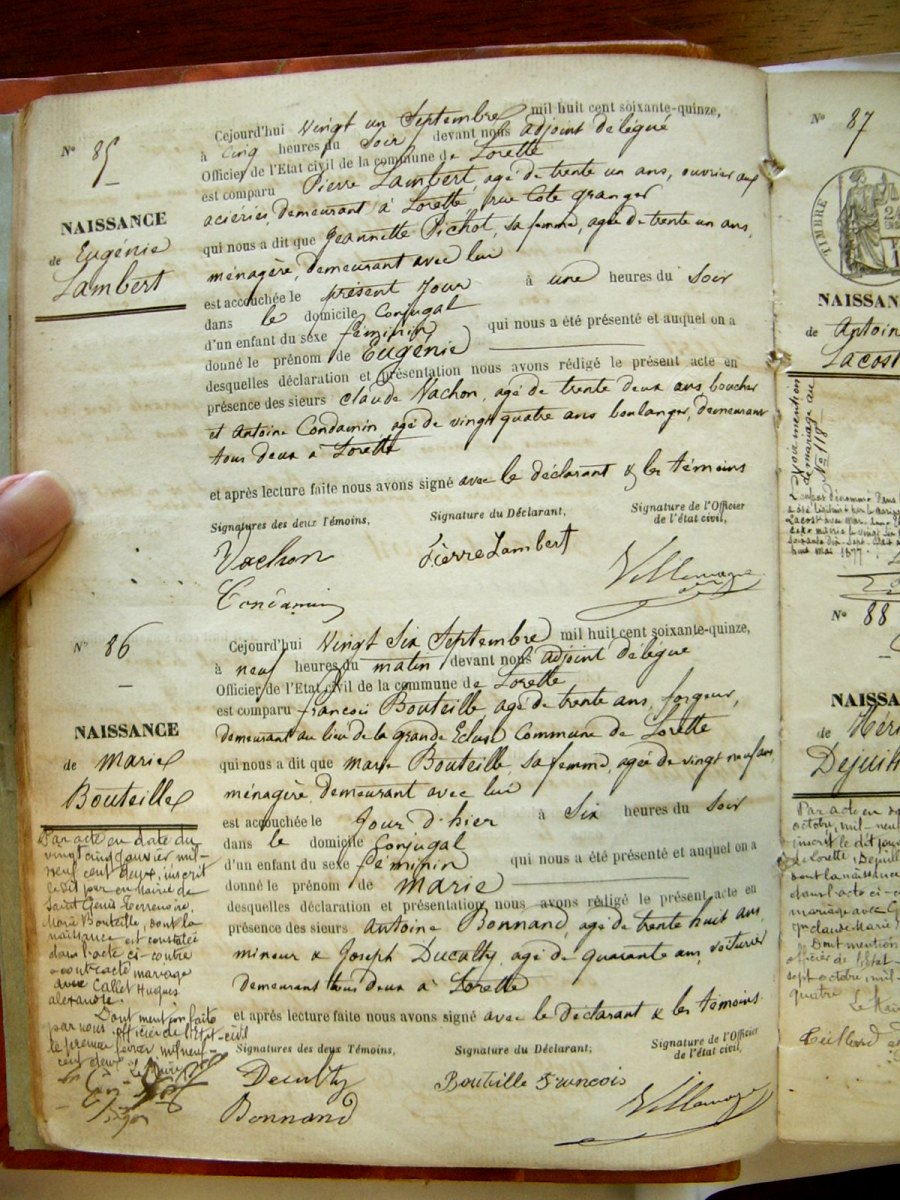 N° 85
NAISSANCE
de Eugénie
Lambert
Cejourd'hui Vingt un Septembre mil huit cent soixante-quinze,
à cinq heures du Soir devant nous adjoint délégué
Officier de l'Etat civil de la commune de Lorette
est comparu Pierre Lambert, agé de trente un ans, ouvrier aux
aciéries, demeurant à Lorette, rue Cote granger
qui nous a dit que Jeannette Pichot, sa femme, agée de trente un ans,
ménagère, demeurant avec lui
est accouchée le présent Jour à une heures du Soir
dans le domicile Conjugal
d'un enfant du sexe féminin qui nous a été présenté et auquel on a
donné le prénom de Eugénie
desquelles déclaration et présentation nous avons rédigé le présent acte en
présence des sieurs Claude Vachon, agé de trente deux ans boucher
et Antoine Condamin agé de vingt quatre ans boulanger, demeurant
tous deux à Lorette
et après lecture faite nous avons signé avec le déclarant & les témoins
Signatures des deux Témoins,
Signature du Déclarant,
Signature de l'Officier
de l'état civil,
Vachon
Pierre Lambert
Villemagne
Condamin
N° 86
NAISSANCE
de Marie
Bouteille
Cejourd'hui Vingt Six Septembre mil huit cent soixante-quinze,
à neuf heures du matin devant nous adjoint délégué
Officier de l'Etat civil de la commune de Lorette
est comparu françois Bouteille agé de trente ans, forgeur,
demeurant au lieu de la grande Ecluse Commune de Lorette
qui nous a dit que Marie Bouteille, sa femme, agée de vingt neuf ans,
ménagère, demeurant avec lui
est accouchée le Jour d'hier à Six heures du Soir
dans le domicile Conjugal
d'un enfant du sexe féminin qui nous a été présenté et auquel on a
donné le prénom de Marie
desquelles déclaration et présentation nous avons rédigé le présent acte en
présence des sieurs Antoine Bonnand, agé de trente huit ans,
mineur & Joseph Ducalty, agé de quarante ans, voiturier
demeurant tous deux à Lorette
et après lecture faite nous avons signé avec le déclarant & les témoins.
Signatures des deux Témoins,
Signature du Déclarant,
Signature de l'Officier
de l'état civil,
Bouteille François
Bonnand
Villemagne
Par acte en date du
vingt cinq Janvier mil-
neuf cent deux, inscrit
ledit jour en Mairie de
Saint Genis Terrenoire,
Marie Bouteille, dont la
naissance est constatée
dans l'acte ci-contre
a contracté mariage
avec Callet Hugues
alexandre.
Dont mention faite
par nous officier de l'Etat-civil
le premier février mil neuf-
cent deux.
Le Maire
N° 87
TIMBRE
NAISSAN
de Antoine
Lacost
Voir mention
de mariage au
N° 118
mai 1877.
N° 88
NAISSA
de
Dejuih
Par acte en
octobre, mil-neu
inscrit le dit jou
de Lorette,
dont la naissance
dans l'acte ci-c
mariage avec
Dont mention
officier de l'Etat
sept octobre, mil-
quatre
Le Mai